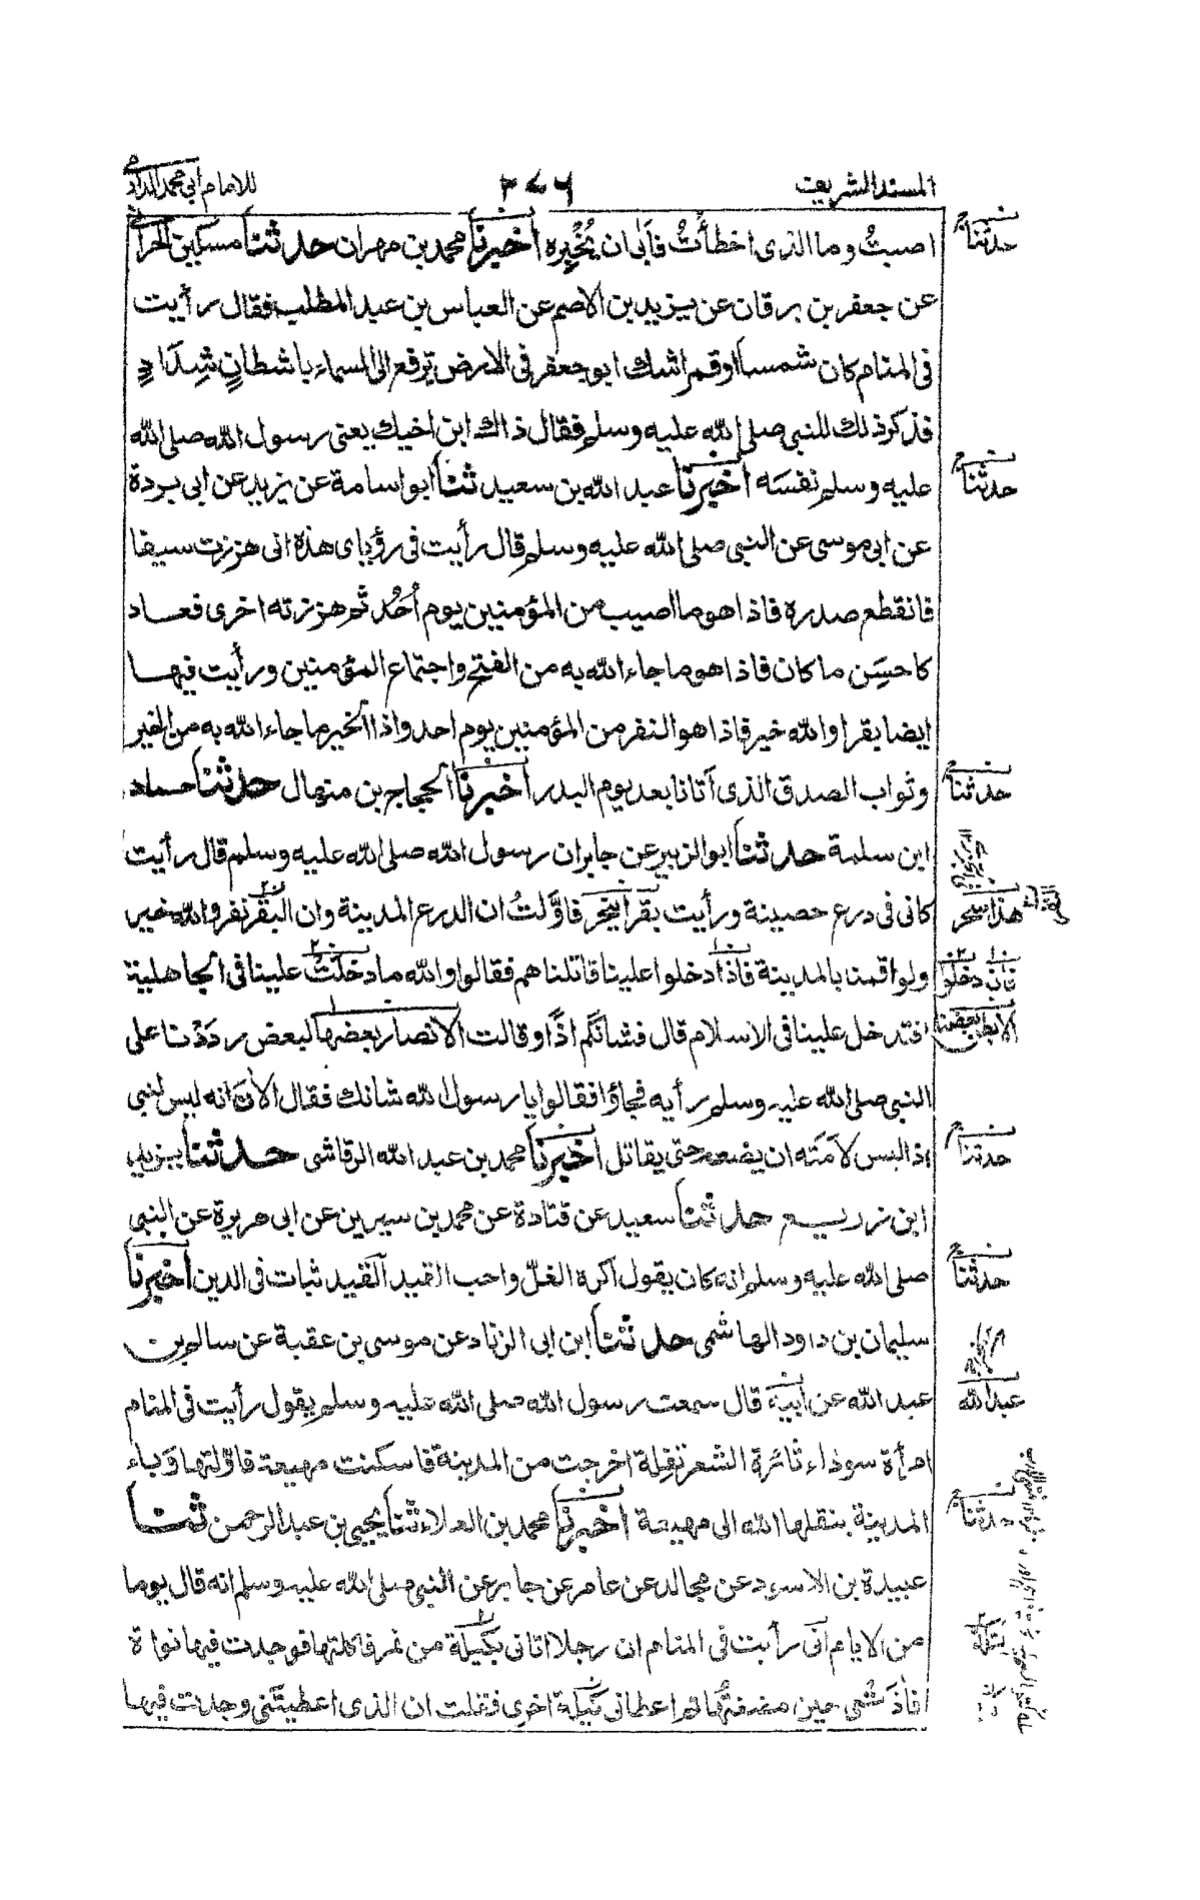 المسند الشريف ٢٧٦ للامام ابي محمد الدارمي
اصبتُ وما الذى اخطأتُ فأبى ان يُخْبِره اخبرنا محمد بن مهران حدثنا مسكين الحرانى
عن جعفر بن برقان عن يزيد بن الاصم عن العباس بن عبد المطلب فقال رأيت
فى المنام كان شمسا او قمرا شك ابو جعفر فى الارض ترفع الى السماء باشطانٍ شِدَادٍ
فذكر ذلك للنبى صلى الله عليه وسلم فقال ذاك ابن اخيك يعنى رسول الله صلى الله
عليه وسلم نفسَه اخبرنا عبد الله بن سعيد ثنا ابو اسامة عن بريد عن ابى بردة
عن ابى موسى عن النبى صلى الله عليه وسلم قال رأيت فى رؤياى هذه انى هززت سيفا
فانقطع صدره فاذا هو ما اصيب من المؤمنين يوم أُحُد ثم هززته اخرى فعاد
كاحسَن ما كان فاذا هو ما جاء الله به من الفتح واجتماع المؤمنين ورأيت فيها
ايضا بقرا والله خير فاذا هو النفر من المؤمنين يوم احد واذا الخير ما جاء الله به من الخير
وثواب الصدق الذى آتانا بعد يوم البدر اخبرنا الحجاج بن منهال حدثنا حماد
ابن سلمة حدثنا ابو الزبير عن جابر ان رسول الله صلى الله عليه وسلم قال رأيت
كانى فى درع حصينة ورأيت بقرا ينحر فاوّلتُ ان الدرع المدينة وان البقر نفر والله خير
ولو اقمنا بالمدينة فاذا دخلوا علينا قاتلناهم فقالوا والله ما دخلتْ علينا فى الجاهلية
افتدخل علينا فى الاسلام قال فشانَكم اذًا وقالت الانصار بعضها لبعض رددْنا على
النبى صلى الله عليه وسلم رأيه فجاؤا فقالوا يا رسول الله شانك فقال الأن انه ليس لنبى
اذا لبس لأمَته ان يضعه حتى يقاتل اخبرنا محمد بن عبد الله الرقاشى حدثنا يزيد
ابن زريع حدثنا سعيد عن قتادة عن محمد بن سيرين عن ابى هريرة عن النبى
صلى الله عليه وسلم انه كان يقول اكره الغلّ واحب القيد القيد ثبات فى الدين اخبرنا
سليمان بن داود الهاشمى حدثنا ابن ابى الزناد عن موسى بن عقبة عن سالم بن
عبد الله عن ابيه قال سمعت رسول الله صلى الله عليه وسلم يقول رأيت فى المنام
امرأة سوداء ثائرة الشعر تفِلة اخرجت من المدينة فاسكنت مهيعة فاوّلتها وَباء
المدينة ينقلها الله الى مهيعة اخبرنا محمد بن العلاء ثنا يحيى بن عبد الرحمن ثنا
عبيدة بن الاسود عن مجالد عن عامر عن جابر عن النبى صلى الله عليه وسلم انه قال يوما
من الايام انى رأيت فى المنام ان رجلا اتانى بكيلة من تمر فاكلتها فوجدت فيها نواة
فأذَتنى حين مضغتها ثم اعطانى كيلة اخرى فقلت ان الذى اعطيتنى وجدت فيها
حدثنا
حدثنا
حدثنا
هذا ينحر
فان دخلوا
حدثنا
حدثنا
عبد الله
حدثنا